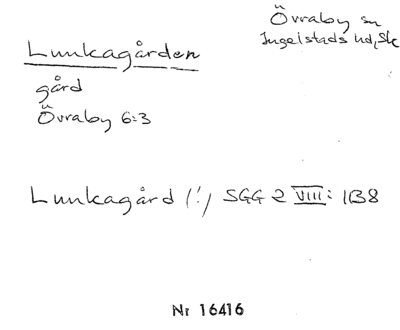 Övraby sn
Ingelstads hd, Sk
Lunkagården
gård
Övraby 6:3
Lunkagård (!) SGG 2 VIII: 1138
Nr 16416